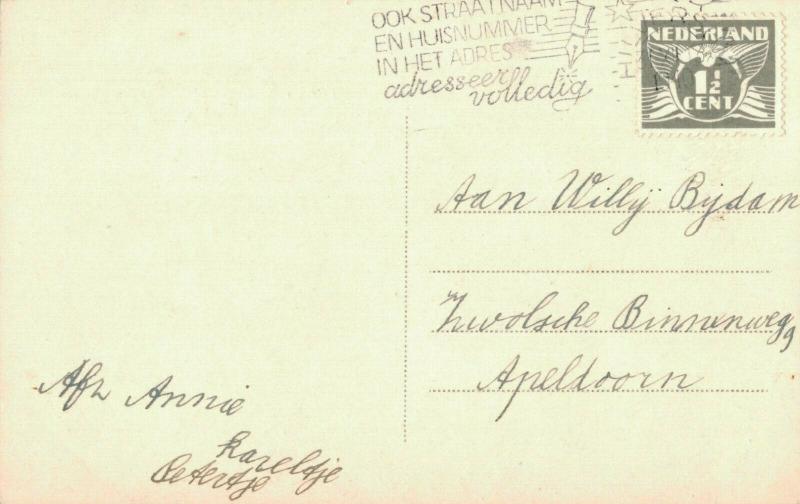 OOK STRAATNAAM
EN HUISNUMMER
IN HET ADRES
adresseer
volledig
NEDERLAND
1½
CENT
Aan Willy Bijdam
Zwolsche Binnenweg 9
Apeldoorn
Afz Annie
Kareltje
Petertje